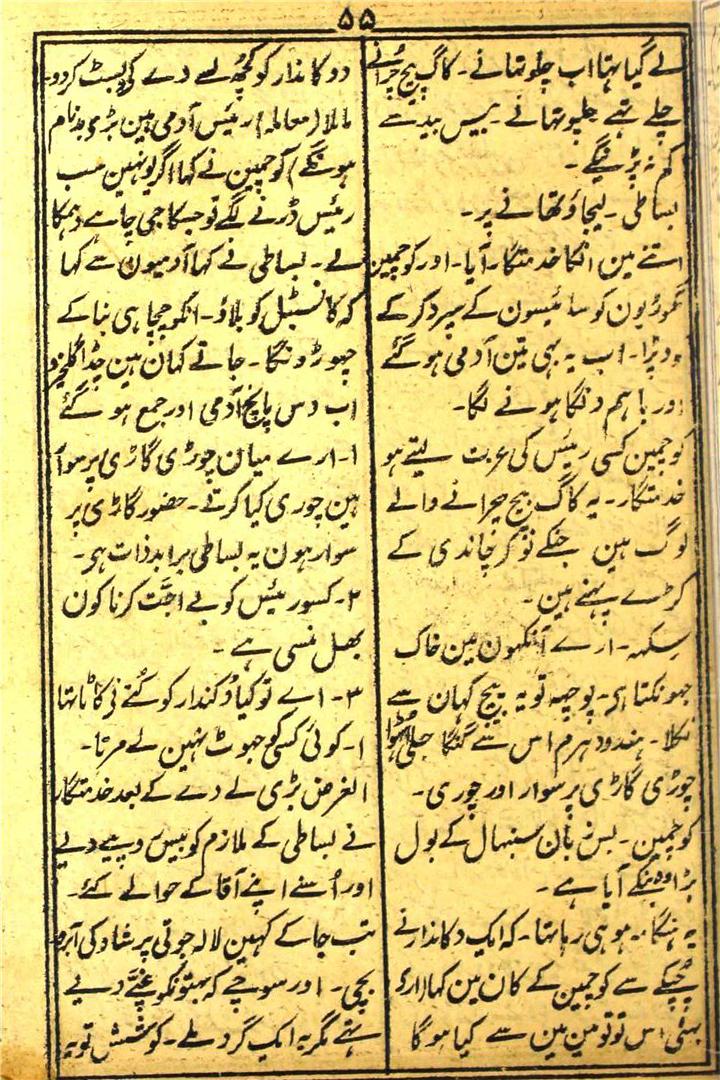 ۵۵
لے گیا تھا اب چلو تھانے۔ کاگ پیچ چُرانے
چلے تہے چلو تھانے۔ بیس بید سے
کم نہ پڑینگے۔
بساطی۔ لیجاؤ تھانے پر۔
اتنے مین انکا خدمتگار آیا۔ اور کوچمین
گھوڑیون کو سائیسون کے سپرد کر کے
ود پڑا۔ اب یہ بھی تین آدمی ہو گئے
اور باہم دنگا ہونے لگا۔
کوچمین کسی رئیس کی عزت لیتے ہو
خدمتگار۔ یہ کاگ پیچ چرانے والے
لوگ ہین جنکے نوکر چاندی کے
کڑے پہنے ہین۔
سکھ۔ ارے آنکھون مین خاک
جھونکتا ہی۔ پوچھ تو یہ پیچ کہان سے
نکلا۔ ہندو دہرم اس سے گنگا جلی اٹھوا
چوڑی گاڑی پر سوار اور چوری۔
کوچمین۔ بس زبان سنبھال کے بول
بڑا وہ بنکے آیا ہے۔
یہ ہنگامہ ہو ہی رہا تھا۔ کہ ایک دکاندار نے
چپکے سے کوچمین کے کان مین کہا (ارے
بھئی اس تو تو مین مین سے کیا ہوگا
دوکاندار کو کچھ لے دے کے پسٹ کردو۔
مالا (معاملہ) رئیس آدمی ہین بڑی بدنام
ہونگے) کوچمین نے کہا اگر یونہین سب
رئیس ڈرنے لگے تو جسکا جی چاہے دھمکا
لے۔ بساطی نے کہا آدمیون سے کہا
کہ کانسٹبل کو بلاؤ۔ انکو چچا ہی بنا کے
چھوڑونگا۔ جاتے کہان ہین
اب دس پانچ آدمی اور جمع ہو گئے
۱۔ ارے میان چوڑی گاڑی پر سوار
ہین چوری کیا کرتے۔ حضور گاڑی پر
سوار ہون یہ بساطی بڑا بدذات ہی۔
۲۔ کسو رئیس کو بے اجّت کرنا کون
بھل منسی ہے۔
۳۔ اے تو کیا دکندار کو کتے نی کاٹا تھا
۱۔ کوئی کسی کو جھوٹ نہین لے مرتا۔
الغرض بڑی لے دے کے بعد خدمتگار
نے بساطی کے ملازم کو بیس روپیے دیے
اور اُسنے اپنے آقا کے حوالے کئے۔
تب جا کے کہین لالہ جوتی پرشاد کی آبرو
بچی۔ اور سوچے کہ بہتونکو غچّے دیے
تہے مگر یہ ایک گرد ملے۔ کوشش تو یہ